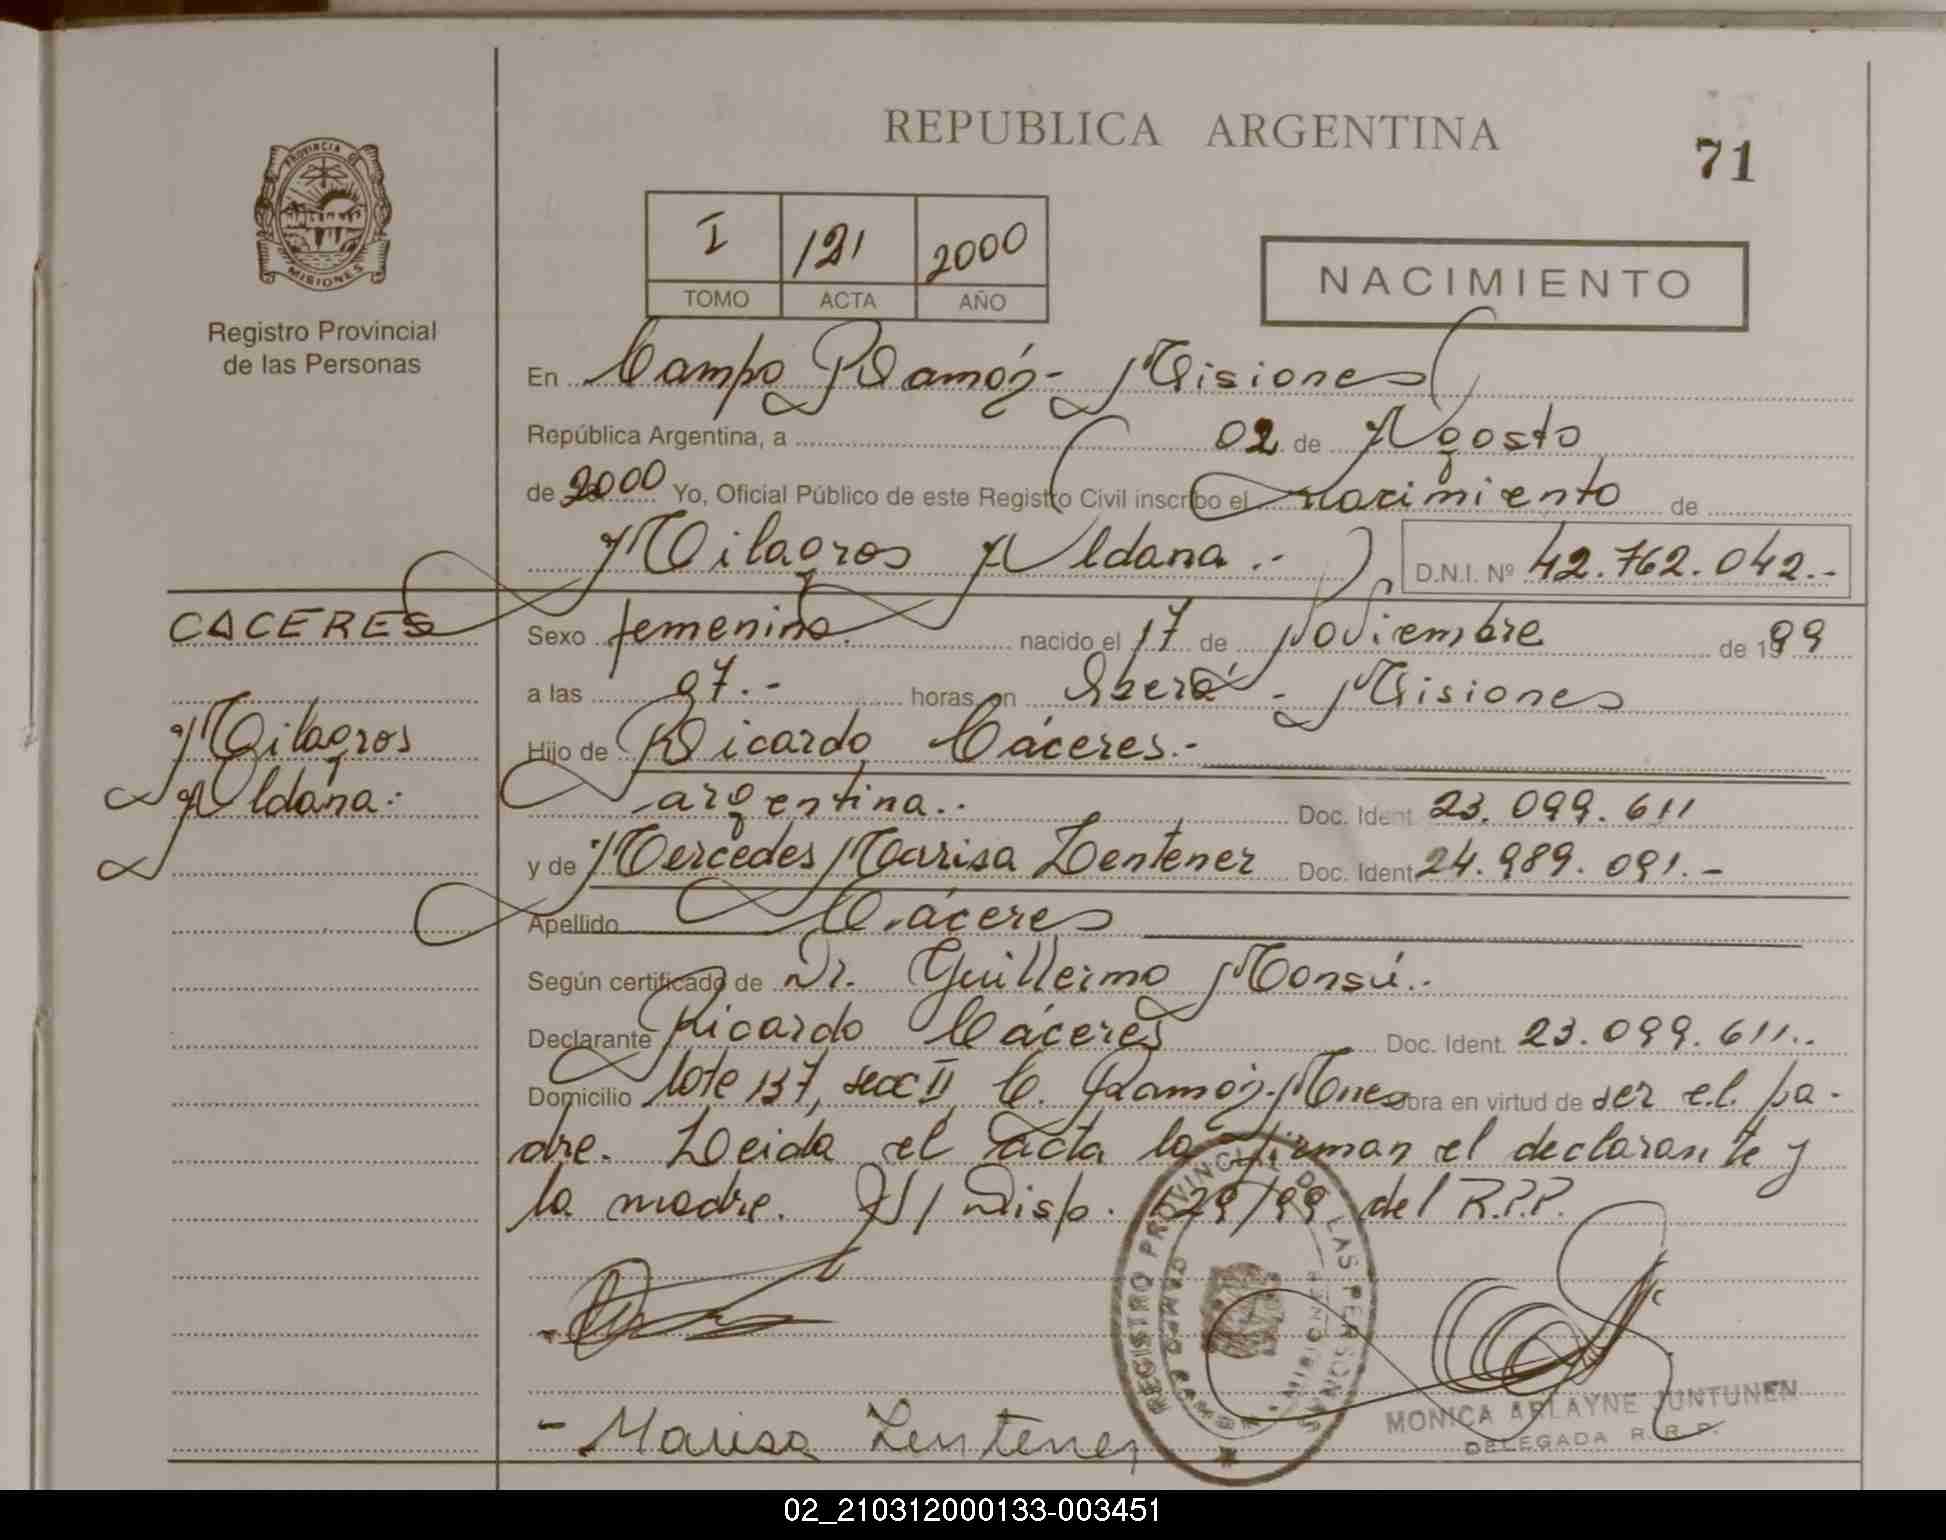 REPUBLICA ARGENTINA
71
PROVINCIA DE
MISIONES
Registro Provincial
de las Personas
I 121 2000
TOMO ACTA AÑO
NACIMIENTO
En Campo Ramón - Misiones
República Argentina, a 02 de Agosto
de 2000 Yo, Oficial Público de este Registro Civil inscribo el nacimiento de
Milagros Aldana.- D.N.I. Nº 42.762.042.-
CACERES
Milagros
Aldana.-
Sexo femenino. nacido el 17 de Noviembre de 1999
a las 07.- horas en Oberá - Misiones
Hijo de Ricardo Cáceres.-
argentina.. Doc. Ident. 23.099.611
y de Mercedes Marisa Zentener Doc. Ident. 24.989.091.-
Apellido Cáceres
Según certificado de Dr. Guillermo Monsú..
Declarante Ricardo Cáceres Doc. Ident. 23.099.611..
Domicilio lote 137, secc II C. Ramón-Mnes Obra en virtud de ser el pa-
dre. Leida el acta la firman el declarante y
la madre. S/ Disp. 529/99 del R.P.P.
REGISTRO PROVINCIAL DE LAS PERSONAS
CAMPO RAMON
MISIONES
- Marisa Zentener
MONICA ARLAYNE JUNTUNEN
DELEGADA R. P. P.
02_210312000133-003451